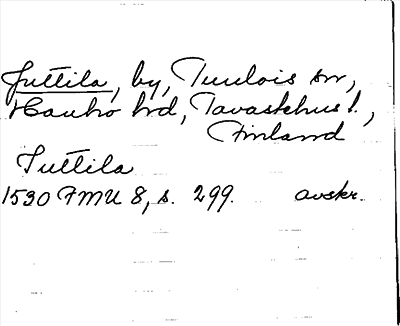 Juttila, by, Tuulois sn,
Hauho hd, Tavastehus l.,
Finland
Juttila
1530 FMU 8, s. 299. avskr.